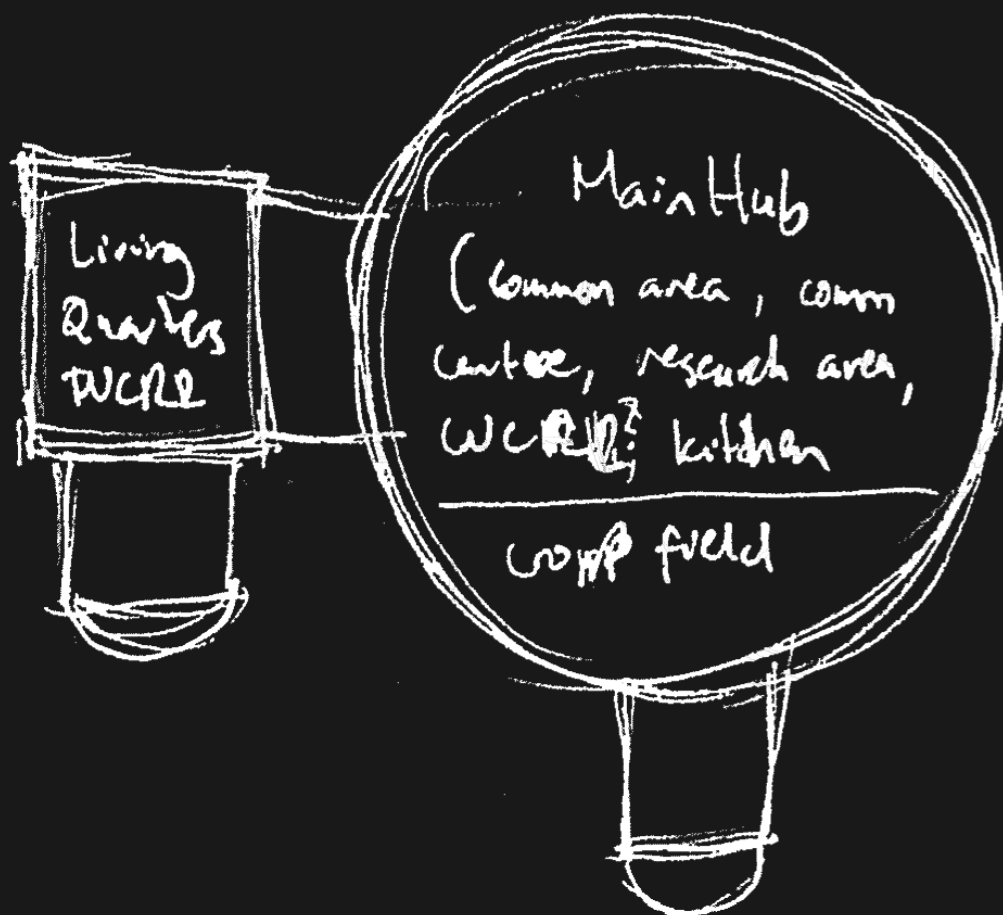 Living
Quarters
Main Hub
(Common area, comm
centre, research area,
kitchen
field